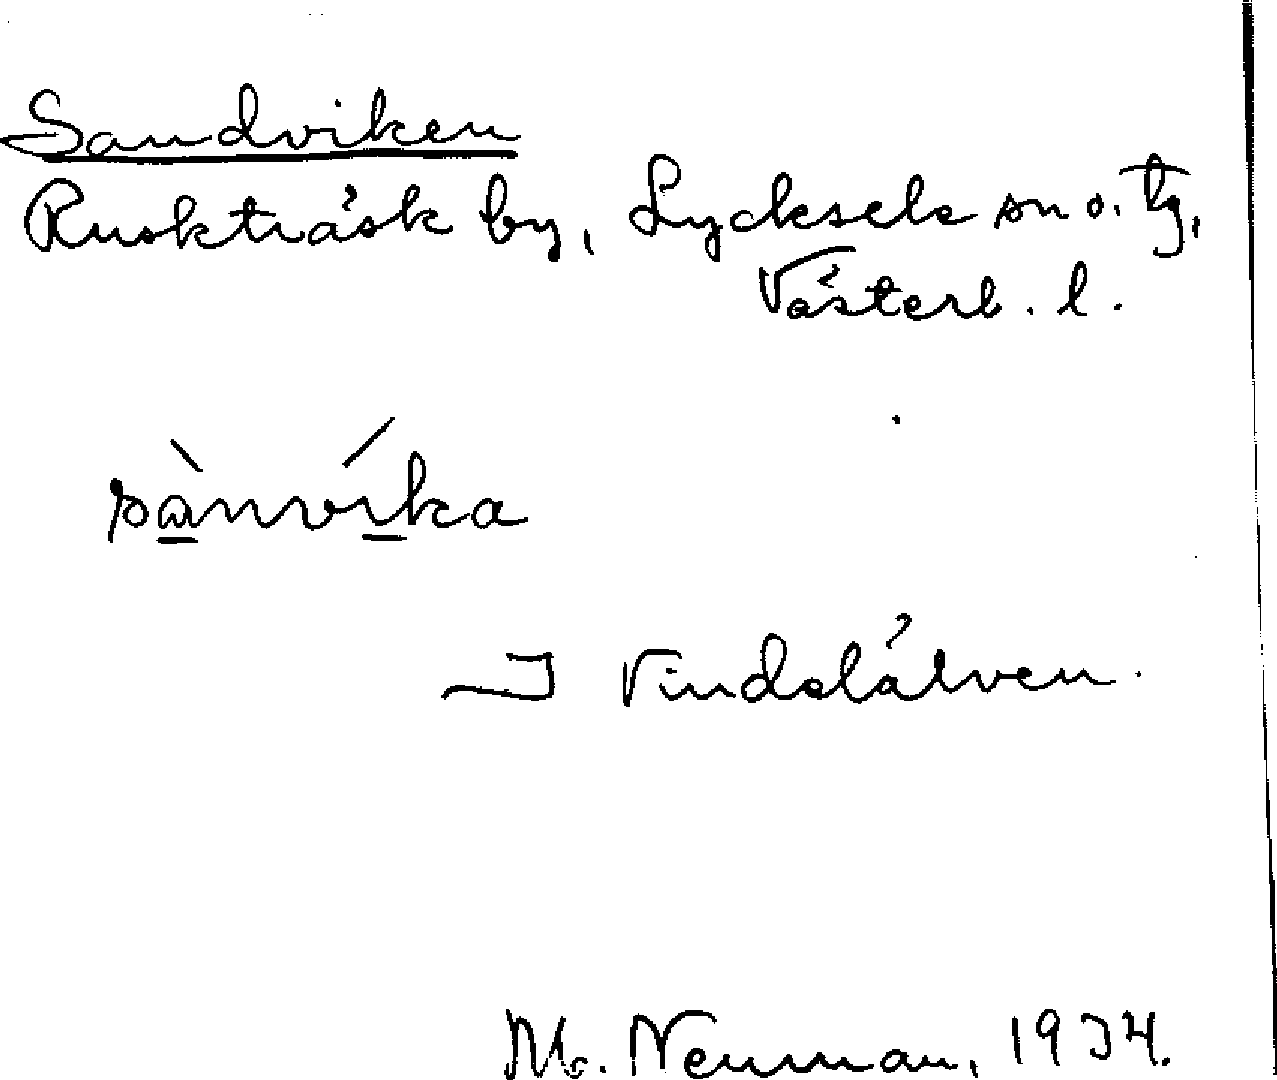 Sandviken
Ruskträsk by, Lycksele sn o. tg,
Västerb. l.
sànvíka
I Vindelälven.
M. Neuman, 1934.